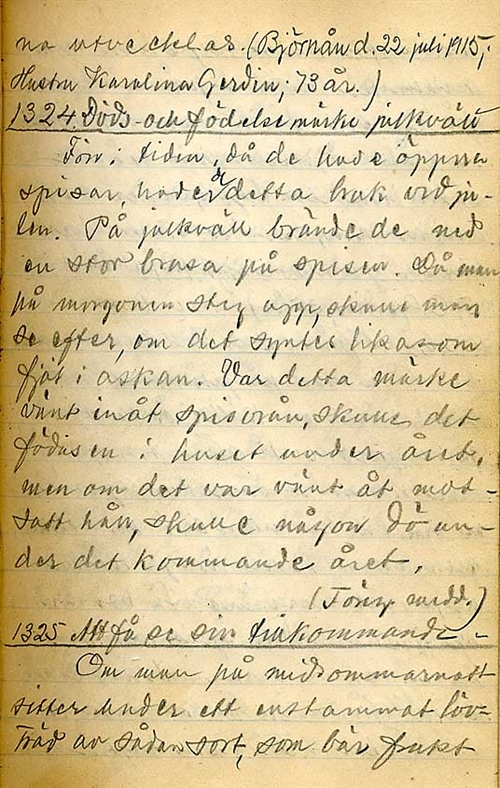 na utvecklas. (Björnån d. 22 juli 1915;
Hustru Karolina Gerdin; 73 år.)
1324. Döds- och födelsemärke julkväll
Förr i tiden, då de hade öppna
spisar, hade de detta bruk vid ju-
len. På julkväll brände de ned
en stor brasa på spisen. Då man
på morgonen steg upp, skulle man
se efter, om det syntes likasom
fjät i askan. Var detta märke
vänt inåt spisvrån, skulle det
födas en i huset under året,
men om det var vänt åt mot-
satt håll, skulle någon dö un-
der det kommande året,
(Föreg. medd.)
1325. Att få se sin tillkommande -
Om man på midsommarnatt
sitter under ett enstammat löv-
träd av sådan sort, som bär frukt